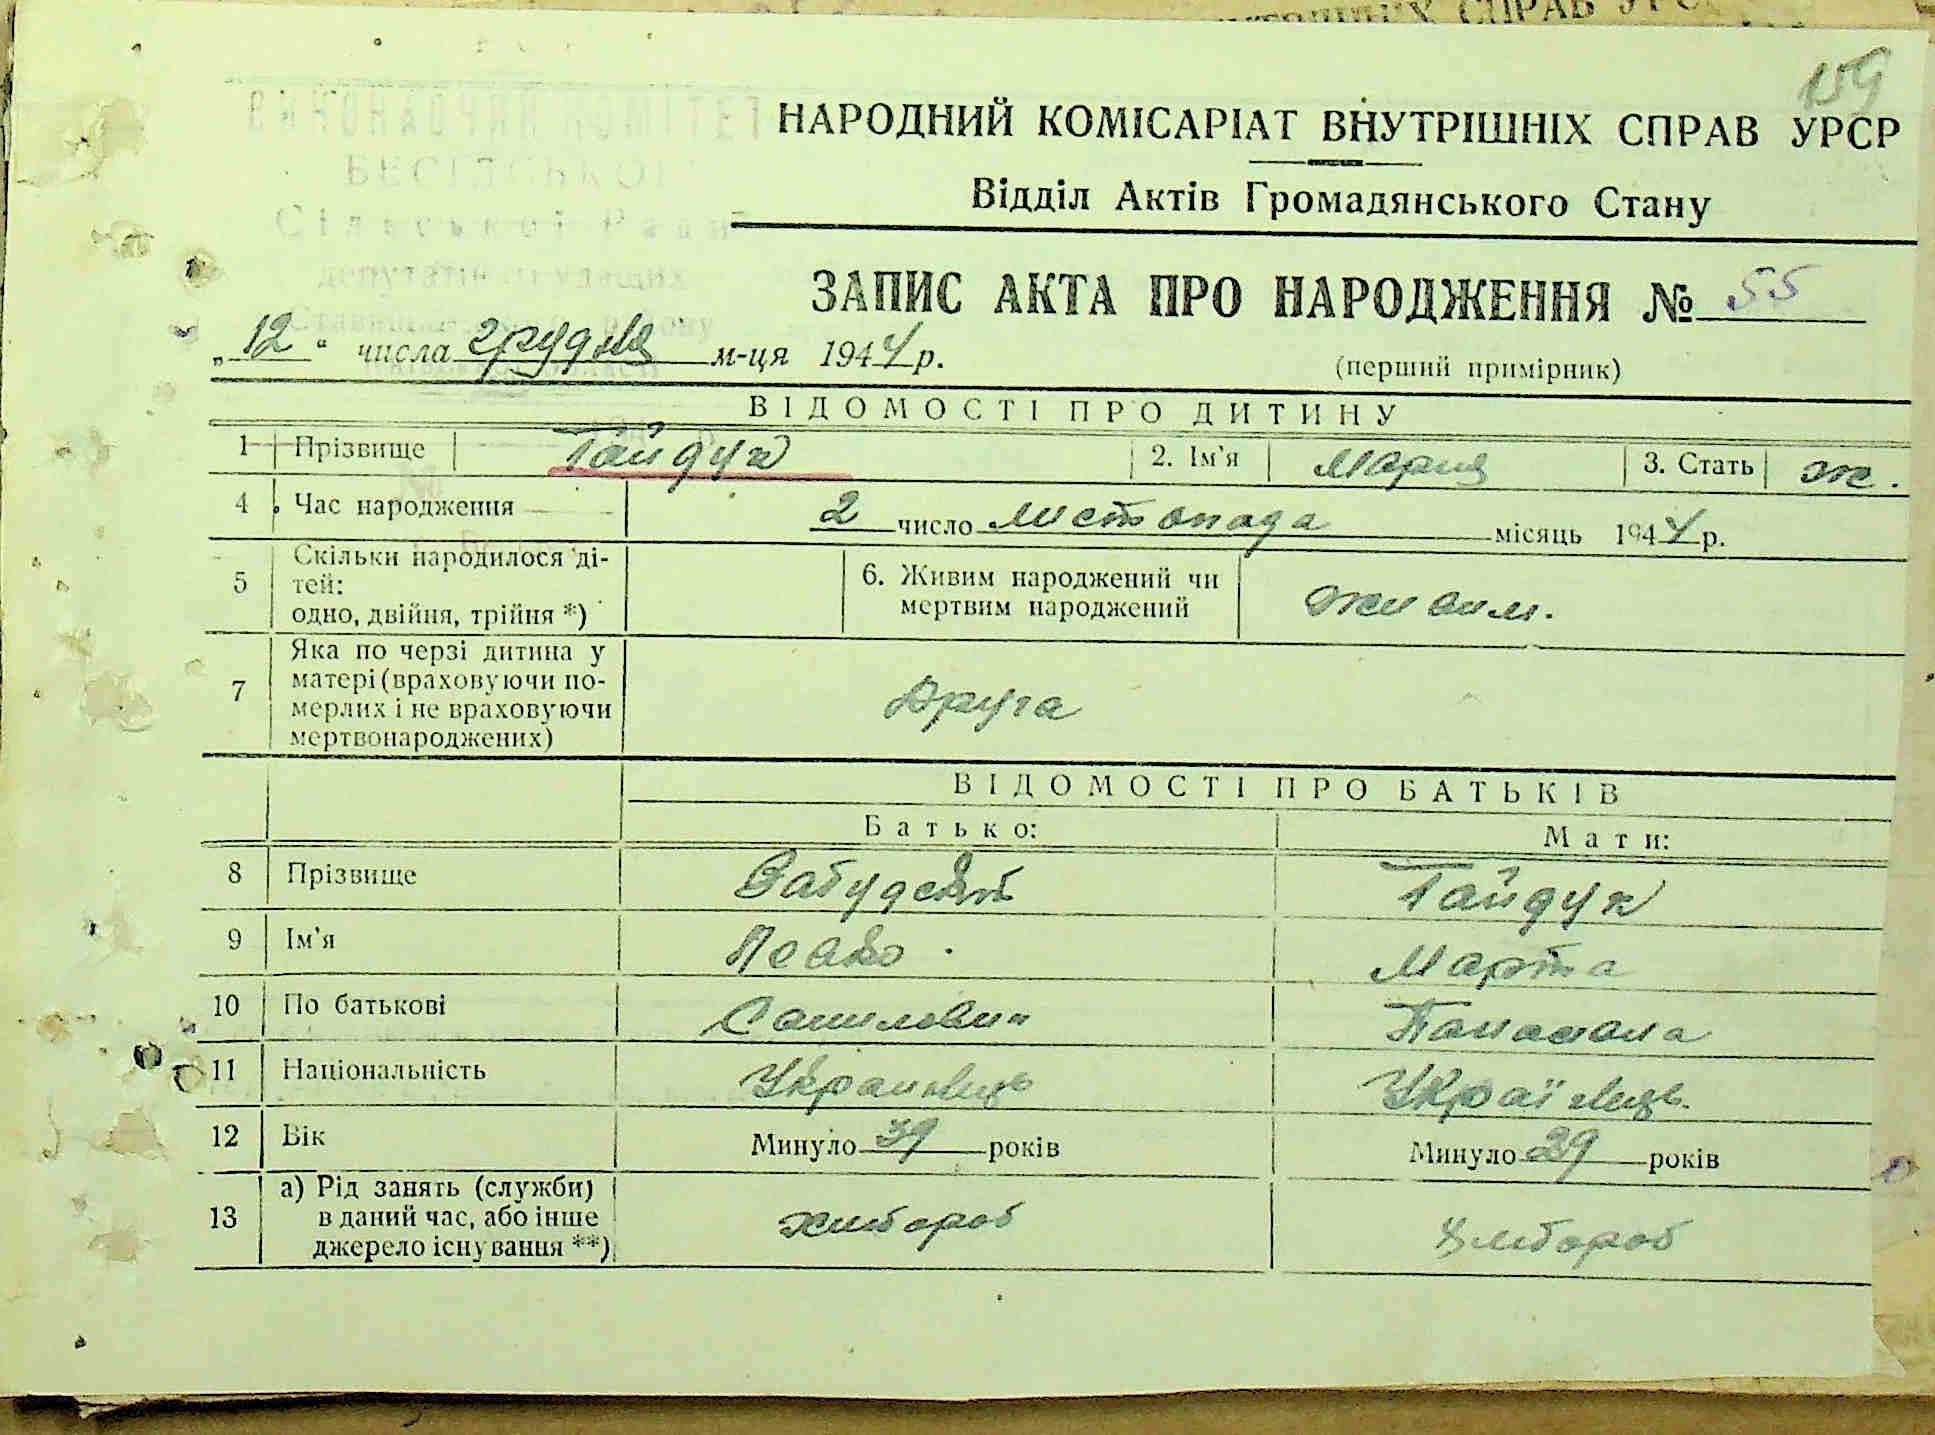 159
ВИКОНАВЧИЙ КОМІТЕТ
БЕСІДСЬКОЇ
Сільської Ради
депутатів трудящих
НАРОДНИЙ КОМІСАРІАТ ВНУТРІШНІХ СПРАВ УРСР
Відділ Актів Громадянського Стану
ЗАПИС АКТА ПРО НАРОДЖЕННЯ № 55
„12“ числа грудня м-ця 1944 р.
(перший примірник)
ВІДОМОСТІ ПРО ДИТИНУ
1 Прізвище Гайдук 2. Ім'я Мария 3. Стать ж.
4 Час народження 2 число листопада місяць 1944 р.
5 Скільки народилося ді-
тей:
одно, двійня, трійня *)
6. Живим народжений чи
мертвим народжений живим.
7 Яка по черзі дитина у
матері (враховуючи по-
мерлих і не враховуючи
мертвонароджених) друга
ВІДОМОСТІ ПРО БАТЬКІВ
Батько: Мати:
8 Прізвище Гайдук
9 Ім'я Марта
10 По батькові
11 Національність Украинець Українець.
12 Вік Минуло 39 років Минуло 29 років
13 а) Рід занять (служби)
в даний час, або інше
джерело існування **) хлібороб хлібороб